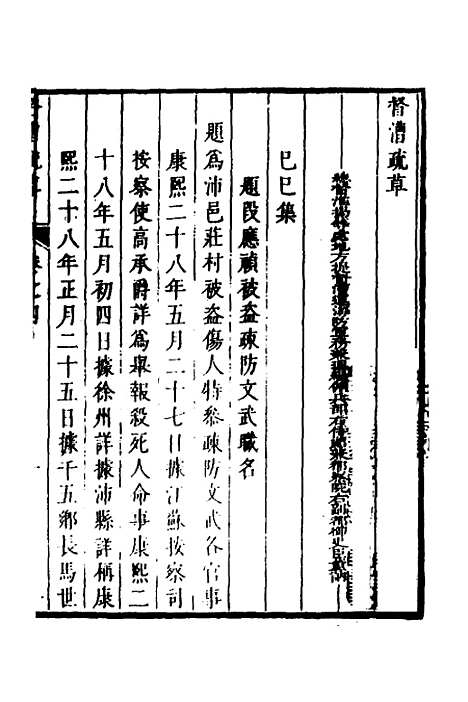 督漕疏草
巳巳集
題段應禎被盗疎防文武職名
題爲沛邑莊村被盗傷人特參疎防文武各官事
康熙二十八年五月二十七日據江蘇按察司
按察使高承爵詳爲皐報殺死人命事康熙二
十八年五月初四日據徐州詳據沛縣詳稱康
熙二十八年正月二十五日據千五鄉長馬世